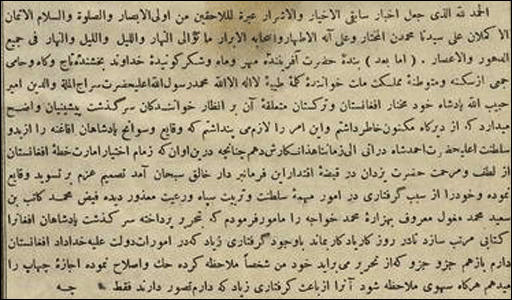 الحمد لله الذی جعل اخبار سابقی الاخیار والاشرار عبرة لللاحقین من اولی الابصار والصلوة والسلام الاتمان
الاکملان علی سیدنا محمدن المختار وعلی آله الاطهار واصحابه الابرار ما توالی النهار واللیل واللیل والنهار فی جمیع
الدهور والاعصار . ( اما بعد ) بندۀ حضرت آفرینندۀ مهر وماه وشکر کوئیدۀ خداوند بخشندۀ تاج وکاه وحامی
جمیع ازسکنه ومتوطنۀ مملکت ملت خوانندۀ کلمۀ طیبۀ لااله الاالله محمد رسول الله اعلیحضرت سراج الملة والدین امیر
حبیب الله پادشاه خود مختار افغانستان وترکستان متعلقۀ آن بر انظار خوانندکان سرکذشت پیشینیان واضح
میدارد که از دیرکاه مکنون خاطر داشتم واین امر را لازم می پنداشتم که وقایع وسوانح پادشاهان افاغنه را ازبدو
سلطنت اعلیحضرت احمدشاه درانی الی زماننا هذا نکارش دهم چنانچه درین اوان که زمام اختیار امارت خطۀ افغانستان
از لطف ومرحمت حضرت یزدان در قبضۀ اقتدار این فرمانبر دار خالق سبحان آمد تصمیم عزم بر تسوید وقایع
نموده وخودرا از سبب کرفتاری در امور مهمۀ سلطنت وتربیت سپاه ورعیت معذور دیده فیض محمد کاتب بن
سعید محمد مغول معروف بهزارۀ محمد خواجه را مامور فرمودم که بتحریر پرداخته سر کذشت پادشاهان افغانرا
کتابی مرتب سازد تادر روز کار یادکار بماند باوجود کرفتاری زیاد که در امورات دولت علیۀ خداداد افغانستان
دارم بازهم جزو جزو که از تحریر می براید خود من شخصاً ملاحظه کرده حك واصلاح نموده اجازۀ چهاپ را
میدهم هرکاه سهوی ملاحظه شود آنرا ازباعث کرفتاری زیاد که دارم تصور دارند فقط